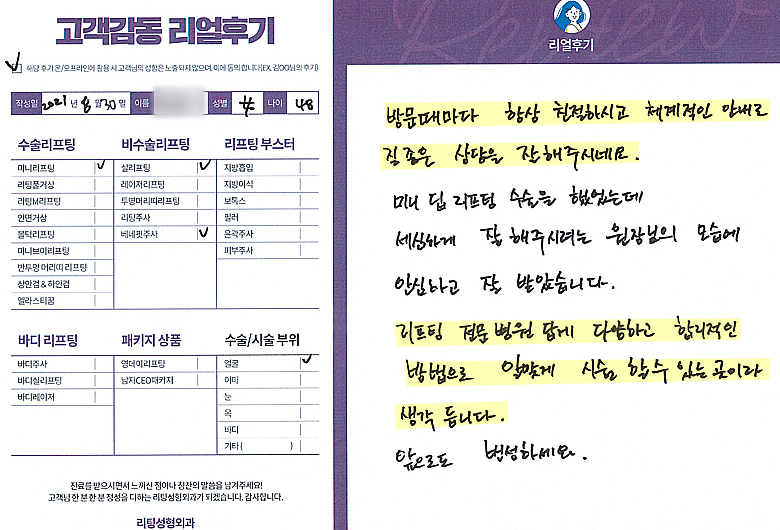 고객감동 리얼후기
해당 후기 온/오프라인에 활용 시 고객님의 성함은 노출되지 않으며, 이에 동의 합니다(EX. 김OO님의 후기)
작성일 2021년 8월 30일 이름 성별 女 나이 48
수술리프팅 비수술리프팅 리프팅 부스터
미니리프팅 실리프팅 지방흡입
리팅풀거상 레이저리프팅 지방이식
리팅M리프팅 투명머리띠리프팅 보톡스
안면거상 리팅주사 필러
볼턱리프팅 베네핏주사 윤곽주사
미니브이리프팅 피부주사
반투명 머리띠 리프팅
상안검 & 하안검
엘라스티꿈
바디 리프팅 패키지 상품 수술/시술 부위
바디주사 영데이리프팅 얼굴
바디실리프팅 남자CEO패키지 이마
바디레이저 눈
목
바디
기타 ( )
진료를 받으시면서 느끼신 점이나 칭찬의 말씀을 남겨주세요!
고객님 한 분 한 분 정성을 다하는 리팅성형외과가 되겠습니다. 감사합니다.
리팅성형외과
Review
리얼후기
방문때마다 항상 친절하시고 체계적인 안내로
질 좋은 상담을 잘 해주시네요.
미니 딥 리프팅 수술을 했었는데
세심하게 잘 해주시려는 원장님의 모습에
안심하고 잘 받았습니다.
리프팅 전문병원 답게 다양하고 합리적인
방법으로 알맞게 시술 할 수 있는 곳이라
생각 듭니다.
앞으로도 번성하세요.